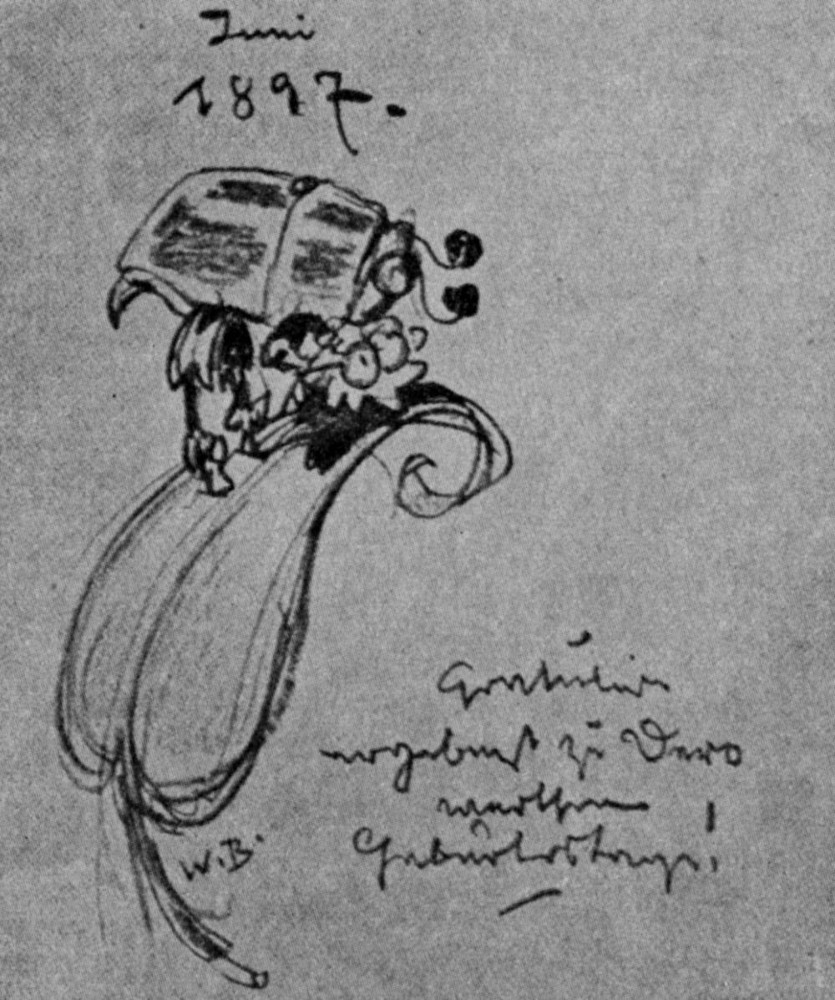 Juni
1897.
W.B.
Gratulire
ergebenst zu Dero
werthem
Geburtstage!